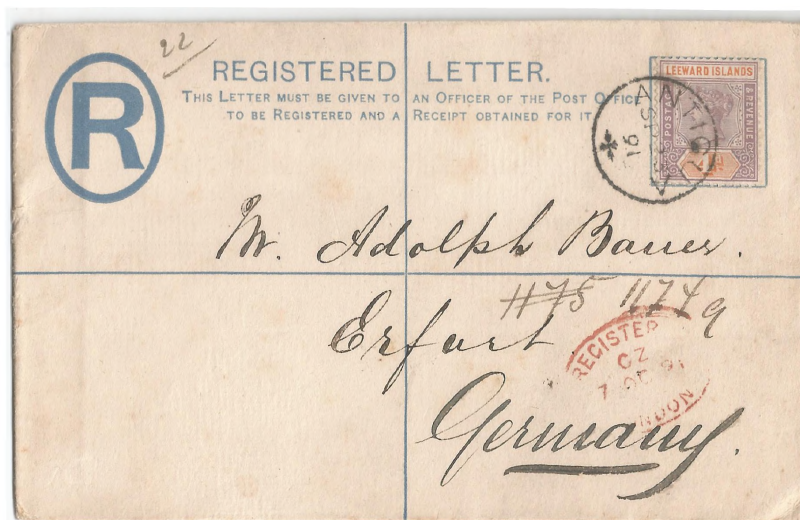 22
R
REGISTERED LETTER.
THIS LETTER MUST BE GIVEN TO AN OFFICER OF THE POST OFFICE
TO BE REGISTERED AND A RECEIPT OBTAINED FOR IT.
LEEWARD ISLANDS
POSTAGE
& REVENUE
ANTIGUA
SP
91
Mr. Adolph Bauer.
1175 1174 9
Erfurt
REGISTERED
CZ
7 OC 91
LONDON
Germany.